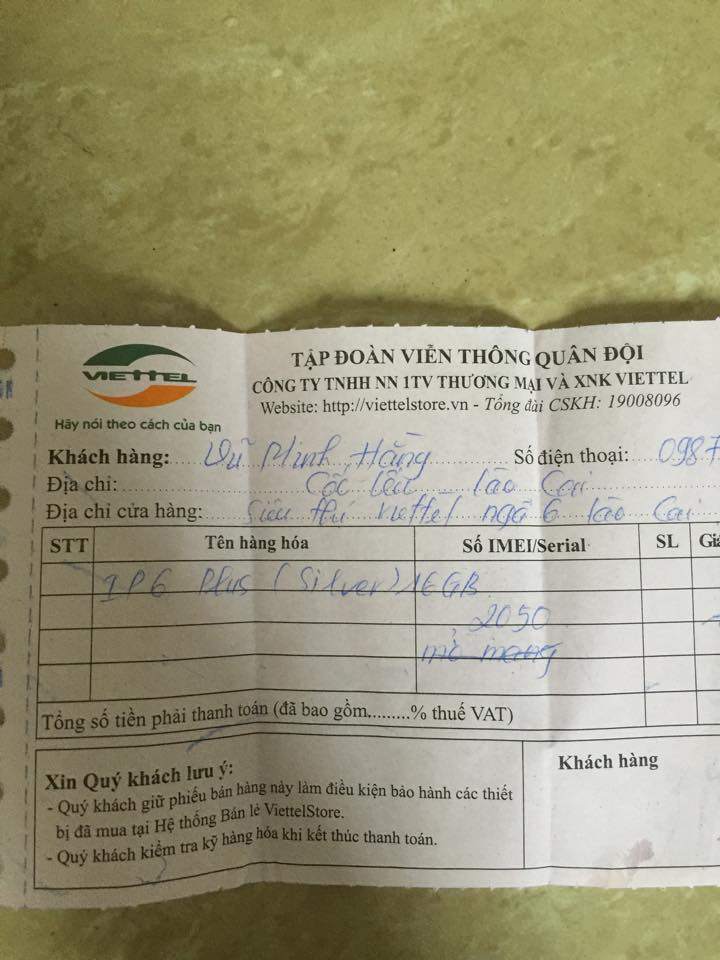 TẬP ĐOÀN VIỄN THÔNG QUÂN ĐỘI
VIETTEL
CÔNG TY TNHH NN 1TV THƯƠNG MẠI VÀ XNK VIETTEL
Website: http://viettelstore.vn - Tổng đài CSKH: 19008096
Hãy nói theo cách của bạn
Khách hàng: Vũ Minh Hằng Số điện thoại: 0987
Địa chỉ: Cốc Lếu Lào Cai
Địa chỉ cửa hàng: Siêu thị Viettel ngã 6 Lào Cai
STT Tên hàng hóa Số IMEI/Serial SL Giá
IP6 Plus (Silver) 16GB
2050
Tổng số tiền phải thanh toán (đã bao gồm.........% thuế VAT)
Xin Quý khách lưu ý:
- Quý khách giữ phiếu bán hàng này làm điều kiện bảo hành các thiết
bị đã mua tại Hệ thống Bán lẻ ViettelStore.
- Quý khách kiểm tra kỹ hàng hóa khi kết thúc thanh toán.
Khách hàng